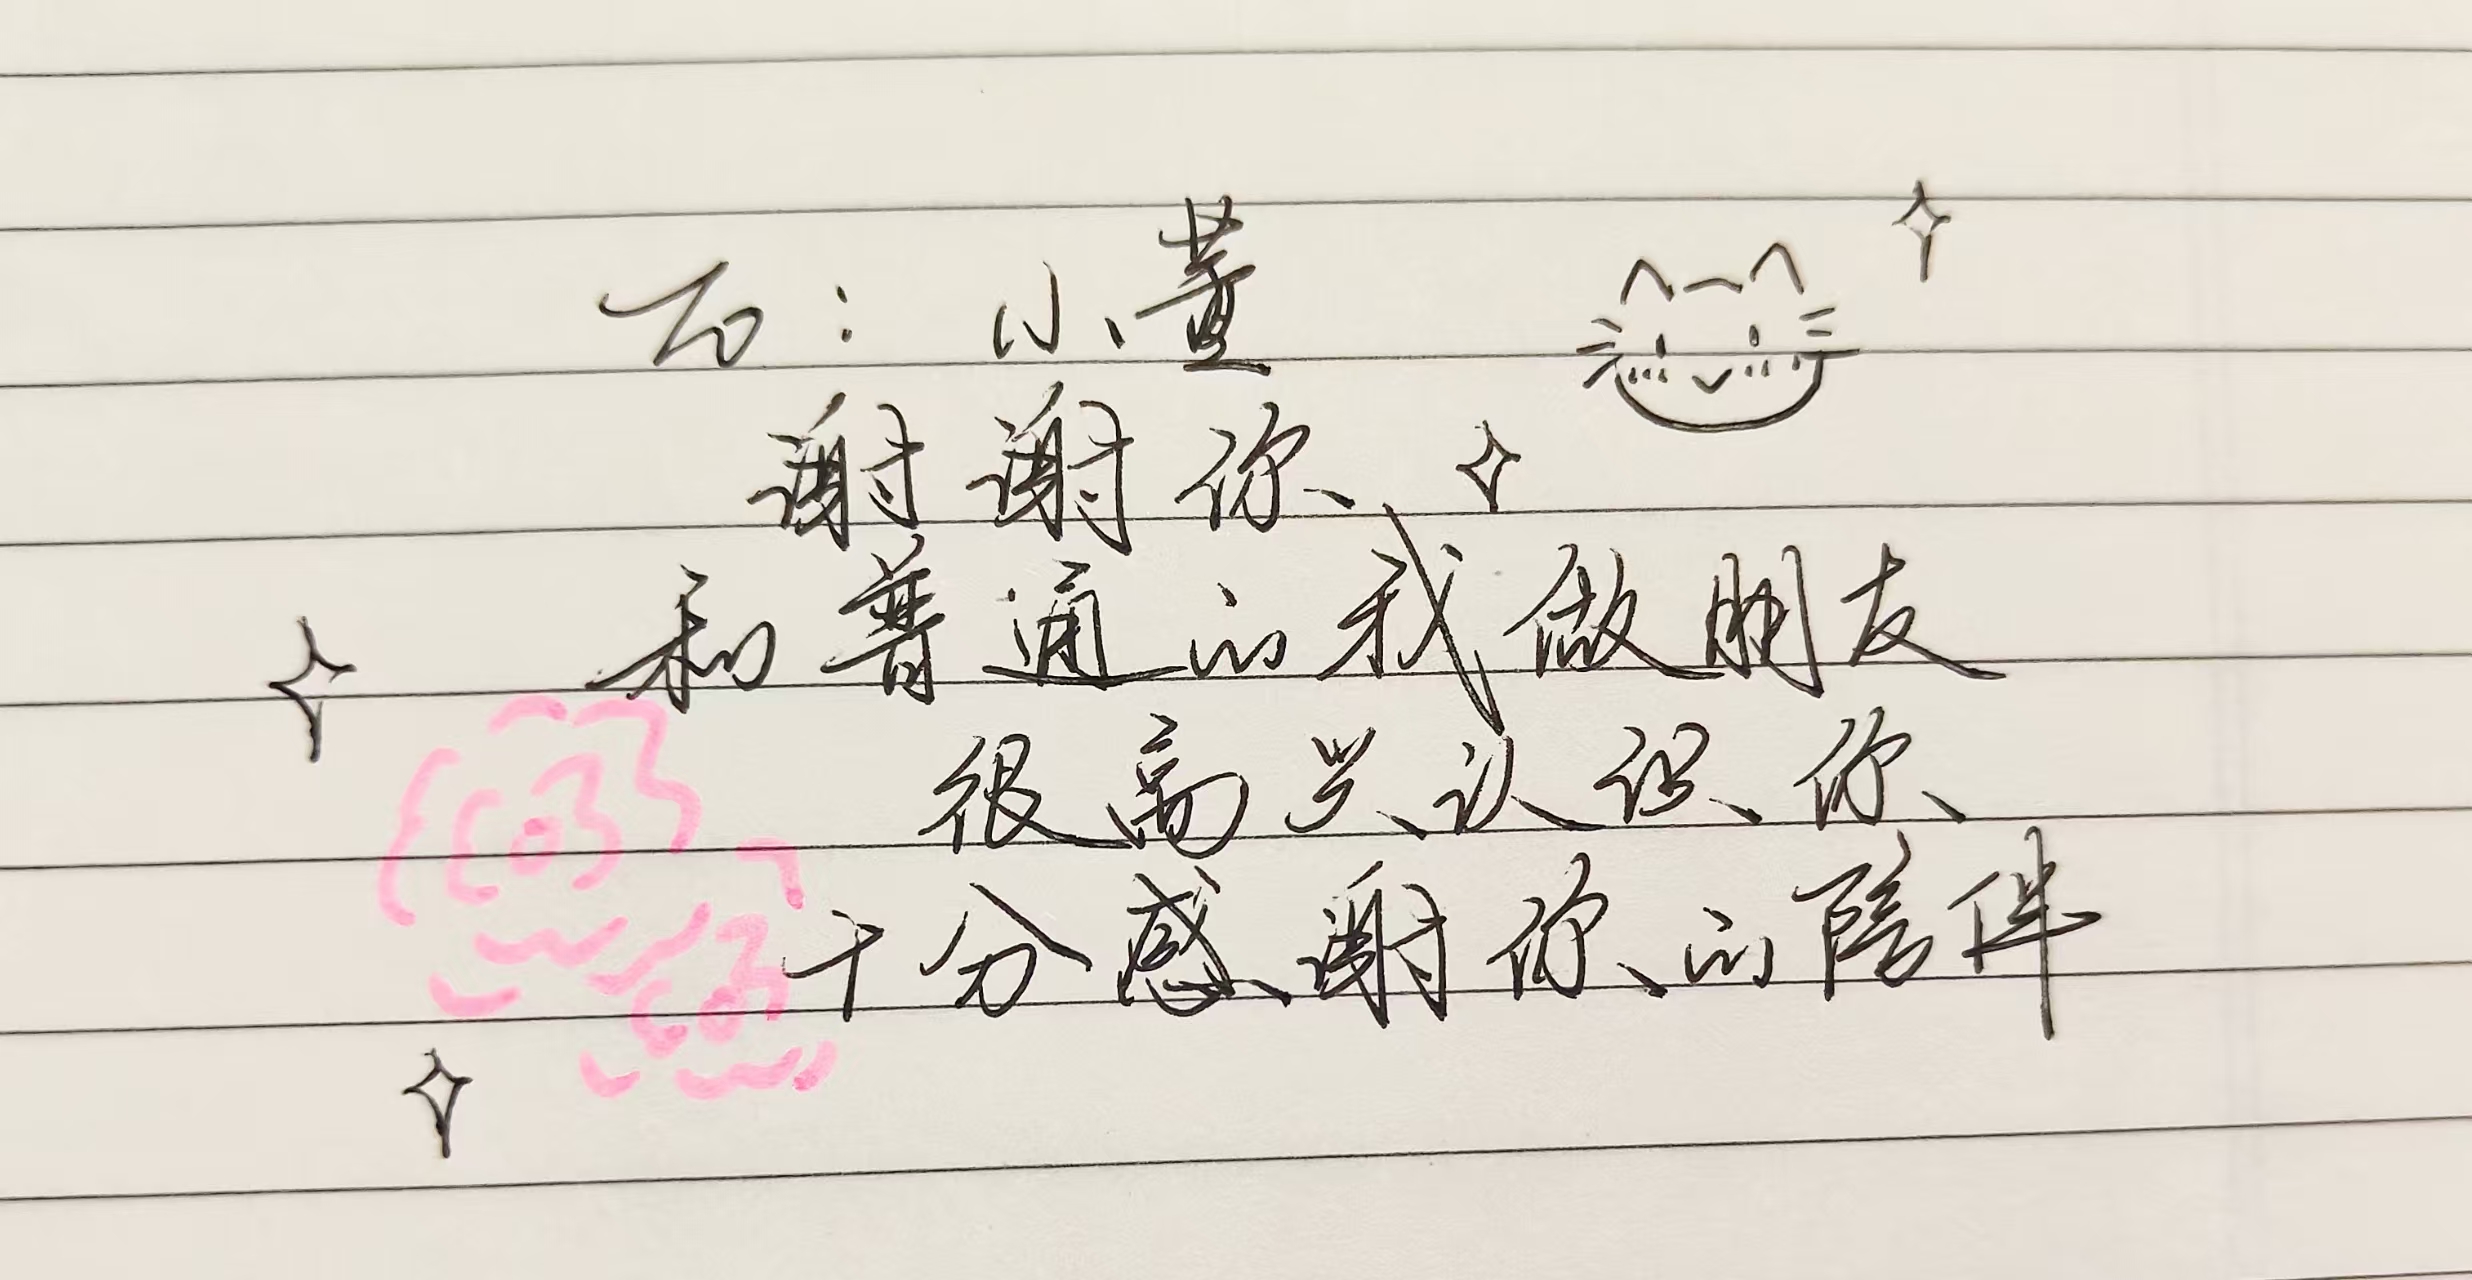 To：小董
谢谢你
和普通的我做朋友
很高兴认识你
十分感谢你的陪伴